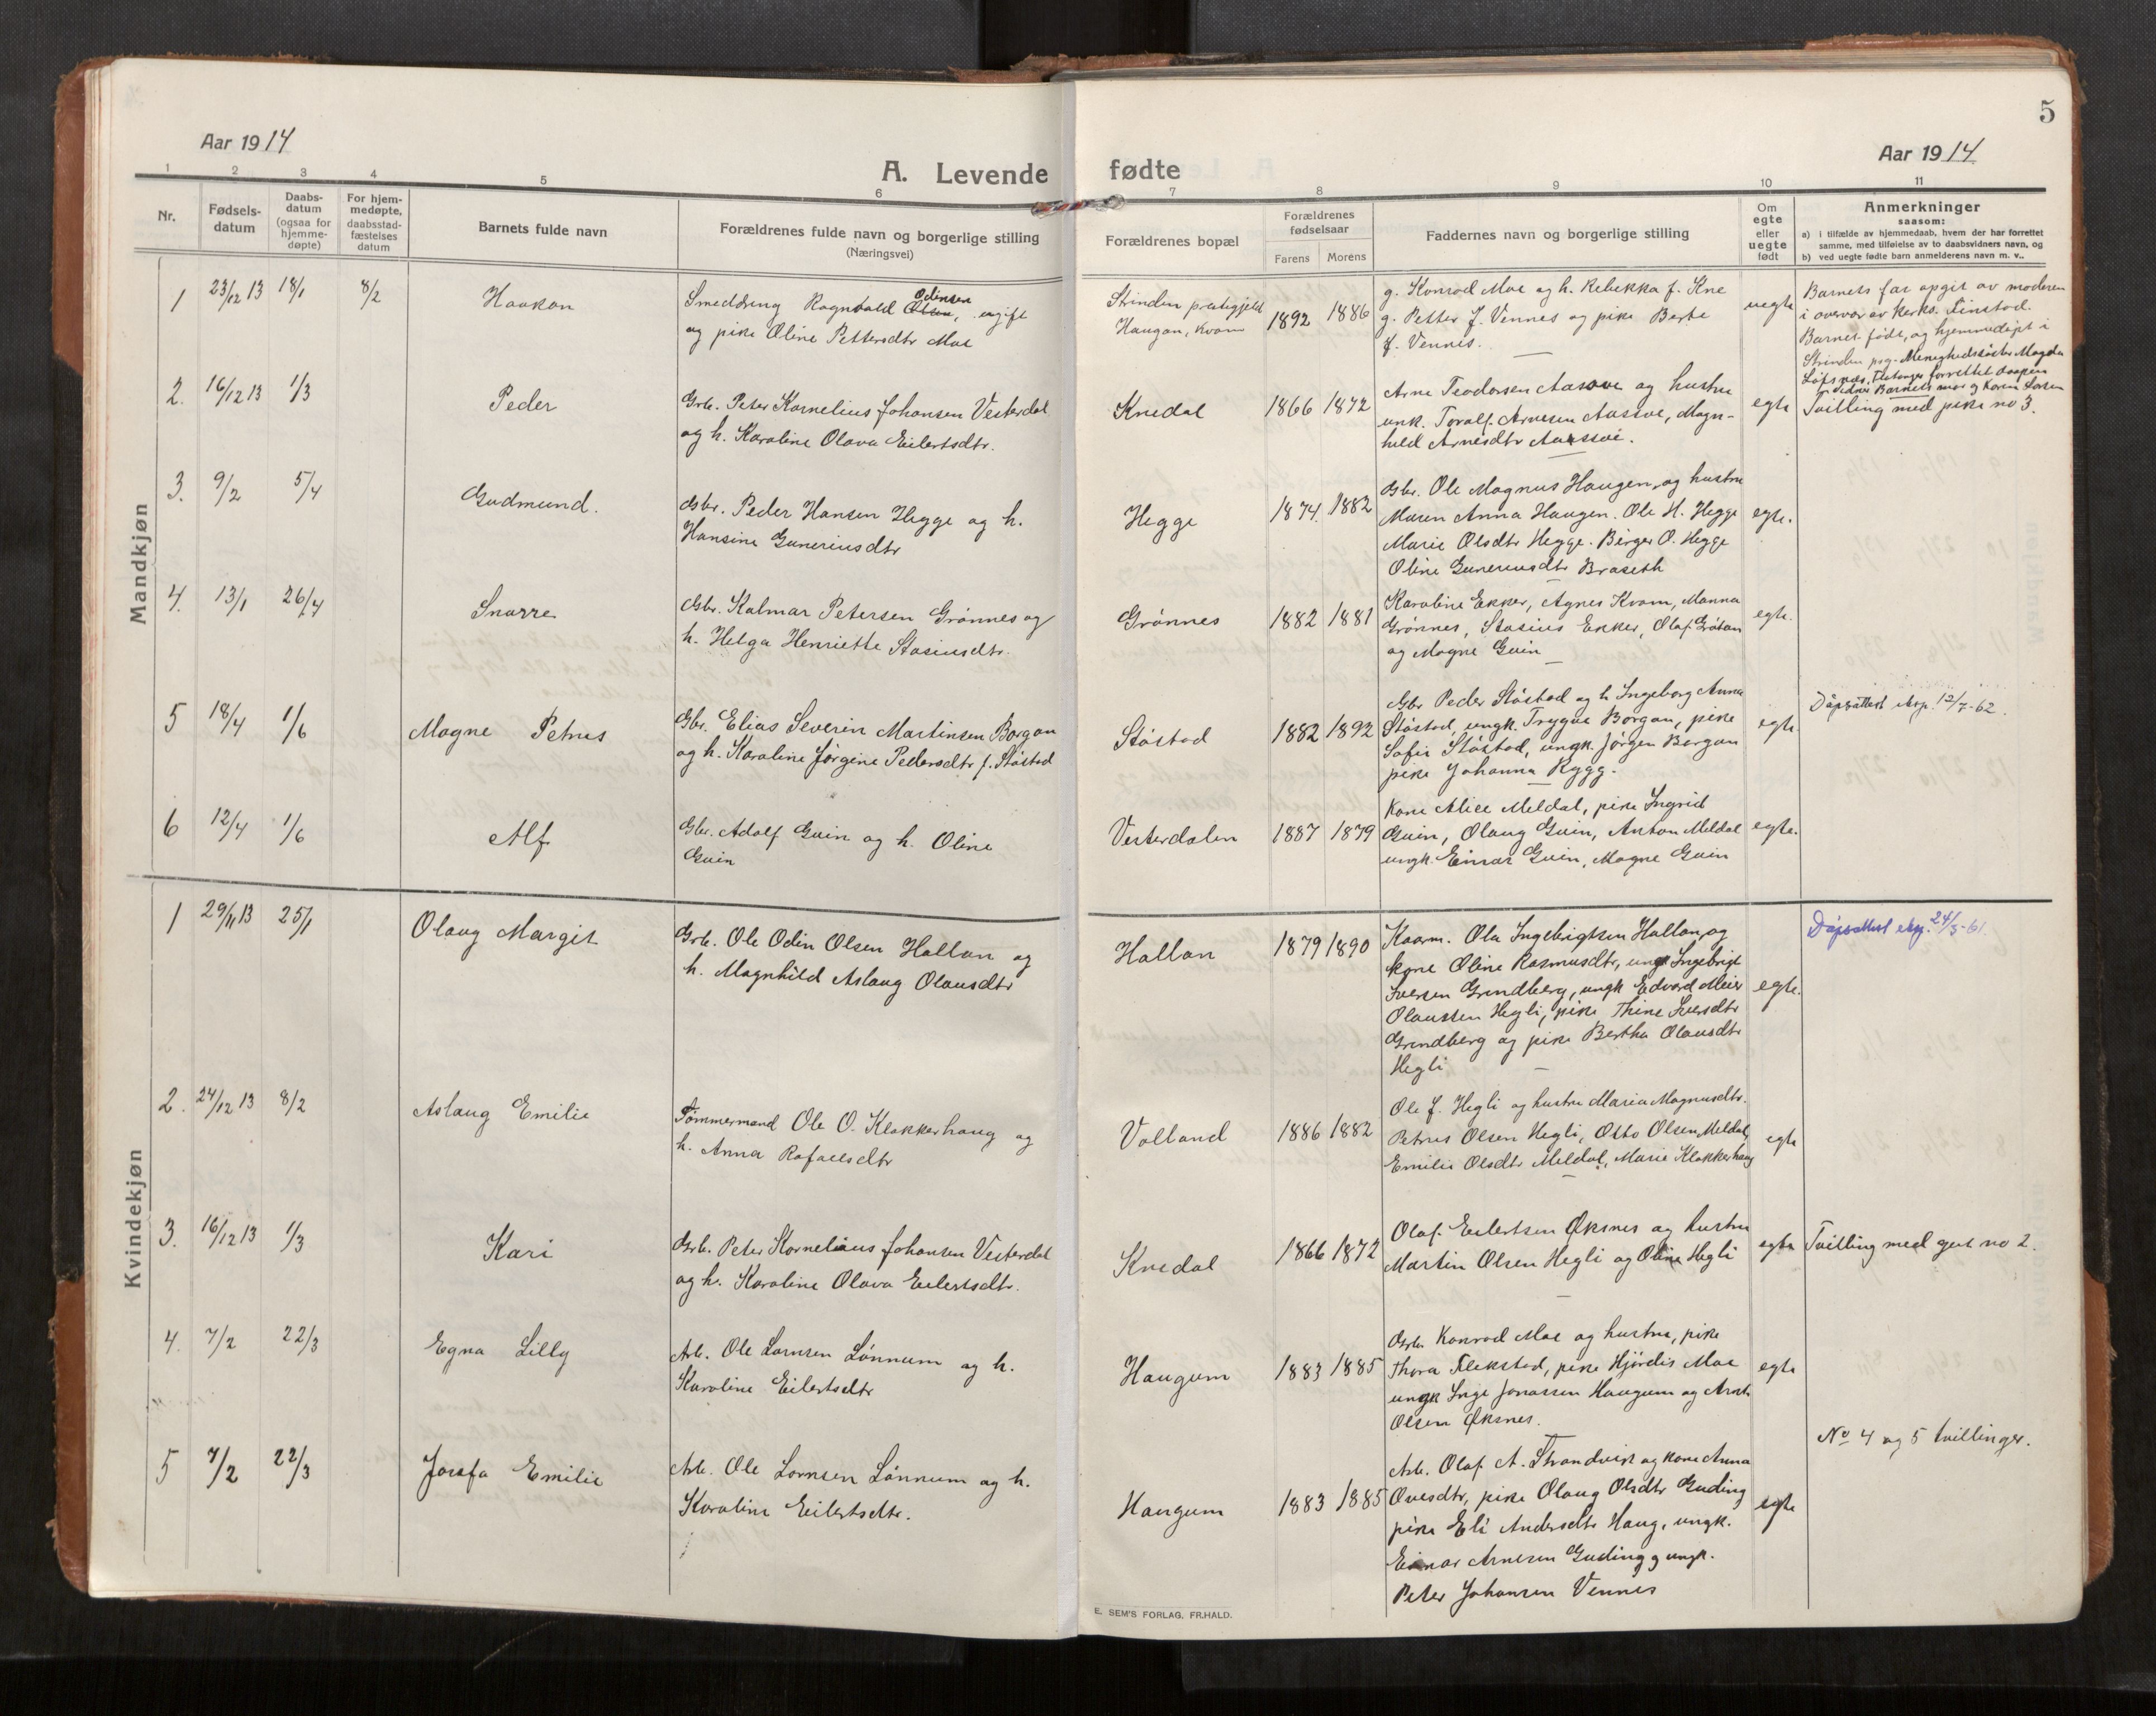 5
Aar 1914
A. Levende fødte
Aar 1914
1 2 3 4 5 6 7 8 9 10 11
Nr.
Fødsels-
datum
Daabs-
datum
(ogsaa for
hjemme-
døpte)
For hjem-
medøpte,
daabsstad-
fæstelses
datum
Barnets fulde navn
Forældrenes fulde navn og borgerlige stilling
(Næringsvei)
Forældrenes bopæl
Forældrenes
fødselsaar
Farens Morens
Faddernes navn og borgerlige stilling
Om
egte
eller
uegte
født
Anmerkninger
saasom:
a) i tilfælde av hjemmedaab, hvem der har forrettet
samme, med tilføielse av to daabsvidners navn, og
b) ved uegte fødte barn anmelderens navn m. v..
Mandkjøn
1 23/12 13 18/1 8/2 Haakon
Smeddreng Ragnvald Olsen, ugift
Odinsen
og pike Oline Pettersdtr Moe
Strinden prestegjeld
Haugan, Kvam
1892 1886
g. Konrad Moe og h. Rebekka f. Kne
g. Petter J. Vennes og pike Berte
J. Vennes.
uegte
Barnets far opgit av moderen
i overvær av kirks. Finstad.
Barnet født og hjemmedøpt i
Strinden prg. Menighedssøster Magda
forrettet daapen
Barnets mor og Karen Larsen
2. 16/12 13 1/3 Peder
Grb. Peter Kornelius Johansen Vesterdal
og h. Karoline Olava Eilertsdtr.
Knedal
1866 1872
Arne Teodorsen Aasove og hustru
unk. Toralf Arnesen Aasove, Magn-
hild Arnesdtr Aassve.
egte
Tvilling med pike no 3.
3. 9/2 5/4 Gudmund.
Gbr. Peder Hansen Hegge og h.
Hansine Guneriusdtr
Hegge
1874. 1882
Gbr. Ole Magnus Haugen og hustru
Maren Anna Haugen. Ole H. Hegge
Marie Olsdtr Hegge. Birger O. Hegge
Oline Guneriusdtr Braseth
egte.
4. 13/1 26/4 Snorre
Gbr. Kalmar Petersen Grønnes og
h. Helga Henriette Stasiusdtr.
Grønnes
1882 1881
Karoline Ekker, Agnes Kvam, Manna
Grønnes, Stasius Ekker, Olaf Gråtan
og Magne Guin
egte.
5 18/4 1/6 Magne Petrus
Gbr. Elias Severin Martinsen Borgan
og h. Karoline Jørgine Pedersdtr f. Støstad
Støstad
1882 1892
Gbr Peder Støstad og h Ingeborg Anna
Støstad, ungk. Trygve Borgan, pike
Sofie Støstad, ungk. Jørgen Borgan
pike Johanna Rygg.
egte
Dåpsattest eksp. 12/7-62.
6 12/4 1/6 Alf
Gbr. Adolf Guin og h. Oline
Guin
Vesterdalen
1887 1879
Kone Alice Meldal, pike Ingrid
Guin, Olaug Guin, Anton Meldal
ungk. Einar Guin, Magne Guin
egte.
Kvindekjøn
1 29/11 13 25/1 Olaug Margit
Grb. Ole Odin Olsen Hallan og
h. Magnhild Aslaug Olausdtr
Hallan
1879 1890
Kaarm. Ole Ingebrigtsen Hallan, og
kone Oline Rasmusdtr, ungk Ingebrigt
Iversen Grundberg, ungk Edvard Meier
Olaussen Hegli, pike Thine Iversdtr
Grundberg og pike Bertha Olausdtr
Hegli
egte.
Dåpsattest eksp. 24/5-61.
2. 24/12 13 8/2 Aslaug Emilie
Tømmermand Ole O. Klokkerhaug og
h. Anna Rafaelsdtr
Volland
1886 1882
Ole J. Hegli og hustru Maria Magnusdtr.
Petrus Olsen Hegli, Otto Olsen Meldal,
Emilie Olsdtr Meldal, Marie Klokkerhaug
egte
3. 16/12 13 1/3 Kari
Grb. Peter Kornelius Johansen Vesterdal
og h. Karoline Olava Eilertsdtr.
Knedal
1866 1872
Olaf Eilertsen Øksnes og hustru
Martin Olsen Hegli og Oline Hegli
egte
Tvilling med gut no 2.
4. 7/2 22/3 Egna Lilly
Arb. Ole Larnsen Lønnum og h.
Karoline Eilertsdtr
Haugum
1883 1885
Grb. Konrad Moe og hustru, pike
Thora Flekstad, pike Hjørdis Moe
ungk Inge Jonassen Haugum og Arnt
Olsen Øksnes.
egte
No 4 og 5 tvillinger.
5 7/2 22/3 Josefa Emilie
Arb. Ole Larnsen Lønnum og h.
Karoline Eilertsdtr.
Haugum
1883 1885
Arb. Olaf A. Strandvik og kone Anna
Ovesdtr, pike Olaug Olsdtr Guding
pike Eli Andersdtr Haug, ungk.
Einar Arnesen Guding og ungk.
Peter Johansen Vennes
egte
E. SEM'S FORLAG, FR.HALD.